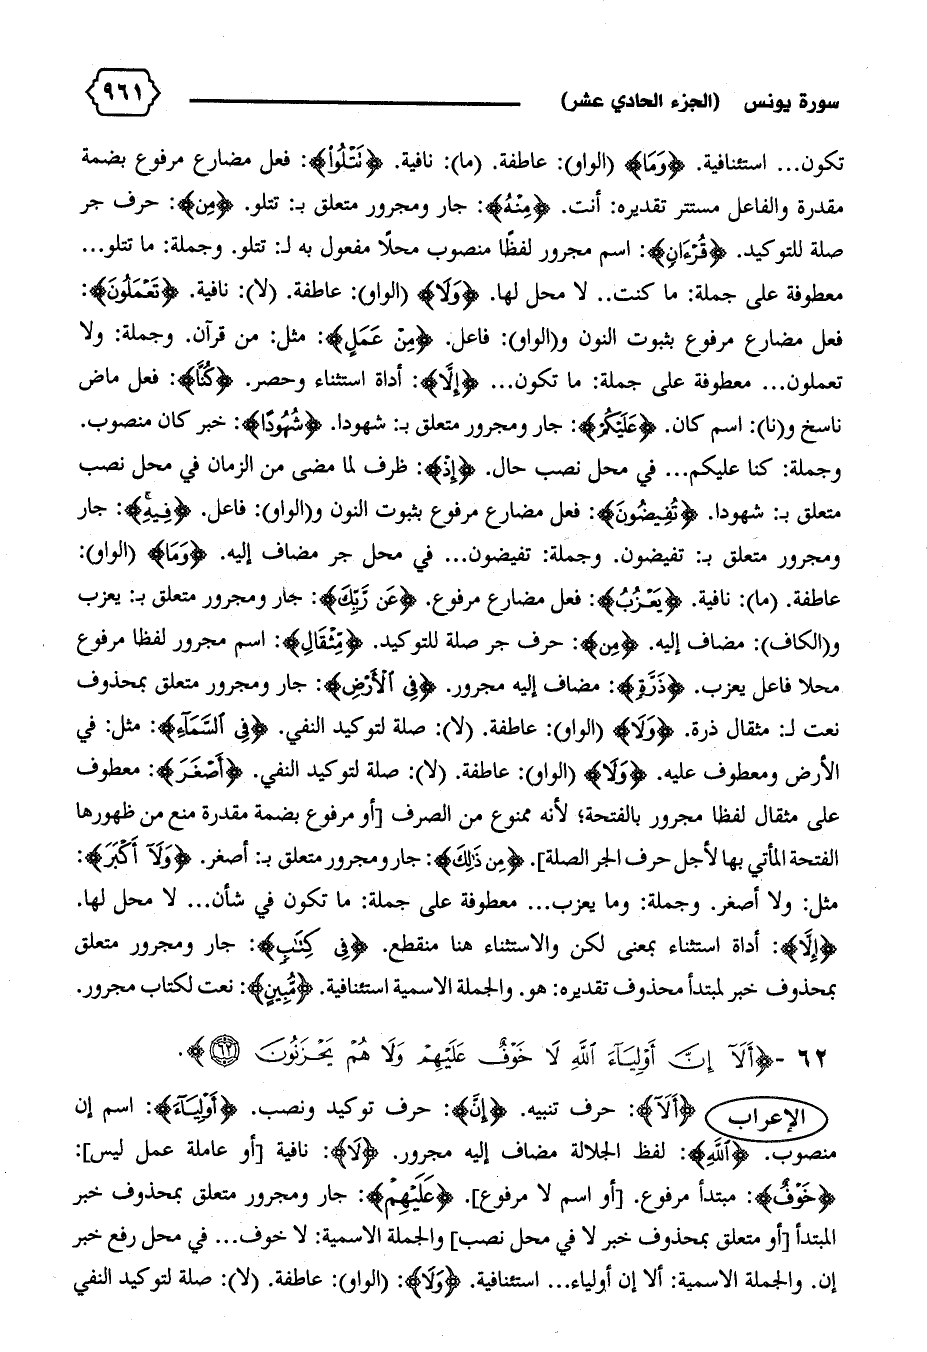 سورة يونس (الجزء الحادي عشر) ٩٦١
تكون... استئنافية. ﴿وَمَا﴾ (الواو): عاطفة. (ما): نافية. ﴿نَتْلُواْ﴾: فعل مضارع مرفوع بضمة
مقدرة والفاعل مستتر تقديره: أنت. ﴿مِنْهُ﴾: جار ومجرور متعلق بـ: تتلو. ﴿مِن﴾: حرف جر
صلة للتوكيد. ﴿قُرْءَانٍ﴾: اسم مجرور لفظًا منصوب محلًا مفعول به لـ: تتلو. وجملة: ما تتلو...
معطوفة على جملة: ما كنت.. لا محل لها. ﴿وَلَا﴾ (الواو): عاطفة. (لا): نافية. ﴿تَعْمَلُونَ﴾:
فعل مضارع مرفوع بثبوت النون و(الواو): فاعل. ﴿مِنْ عَمَلٍ﴾: مثل: من قرآن. وجملة: ولا
تعملون... معطوفة على جملة: ما تكون... ﴿إِلَّا﴾: أداة استثناء وحصر. ﴿كُنَّا﴾: فعل ماض
ناسخ و(نا): اسم كان. ﴿عَلَيْكُمْ﴾: جار ومجرور متعلق بـ: شهودا. ﴿شُهُودًا﴾: خبر كان منصوب.
وجملة: كنا عليكم... في محل نصب حال. ﴿إِذْ﴾: ظرف لما مضى من الزمان في محل نصب
متعلق بـ: شهودا. ﴿تُفِيضُونَ﴾: فعل مضارع مرفوع بثبوت النون و(الواو): فاعل. ﴿فِيهِ ۚ﴾: جار
ومجرور متعلق بـ: تفيضون. وجملة: تفيضون... في محل جر مضاف إليه. ﴿وَمَا﴾ (الواو):
عاطفة. (ما): نافية. ﴿يَعْزُبُ﴾: فعل مضارع مرفوع. ﴿عَن رَّبِّكَ﴾: جار ومجرور متعلق بـ: يعزب
و(الكاف): مضاف إليه. ﴿مِن﴾: حرف جر صلة للتوكيد. ﴿مِّثْقَالِ﴾: اسم مجرور لفظا مرفوع
محلا فاعل يعزب. ﴿ذَرَّةٍ﴾: مضاف إليه مجرور. ﴿فِي ٱلْأَرْضِ﴾: جار ومجرور متعلق بمحذوف
نعت لـ: مثقال ذرة. ﴿وَلَا﴾ (الواو): عاطفة. (لا): صلة لتوكيد النفي. ﴿فِي ٱلسَّمَآءِ﴾: مثل: في
الأرض ومعطوف عليه. ﴿وَلَا﴾ (الواو): عاطفة. (لا): صلة لتوكيد النفي. ﴿أَصْغَرَ﴾: معطوف
على مثقال لفظا مجرور بالفتحة؛ لأنه ممنوع من الصرف [أو مرفوع بضمة مقدرة منع من ظهورها
الفتحة المأتي بها لأجل حرف الجر الصلة]. ﴿مِن ذَٰلِكَ﴾: جار ومجرور متعلق بـ: أصغر. ﴿وَلَآ أَكْبَرَ﴾:
مثل: ولا أصغر. وجملة: وما يعزب... معطوفة على جملة: ما تكون في شأن... لا محل لها.
﴿إِلَّا﴾: أداة استثناء بمعنى لكن والاستثناء هنا منقطع. ﴿فِي كِتَٰبٍ﴾: جار ومجرور متعلق
بمحذوف خبر لمبتدأ محذوف تقديره: هو. والجملة الاسمية استئنافية. ﴿مُّبِينٍ﴾: نعت لكتاب مجرور.
٦٢ - ﴿أَلَآ إِنَّ أَوْلِيَآءَ ٱللَّهِ لَا خَوْفٌ عَلَيْهِمْ وَلَا هُمْ يَحْزَنُونَ ٦٢﴾.
الإعراب ﴿أَلَآ﴾: حرف تنبيه. ﴿إِنَّ﴾: حرف توكيد ونصب. ﴿أَوْلِيَآءَ﴾: اسم إن
منصوب. ﴿ٱللَّهِ﴾: لفظ الجلالة مضاف إليه مجرور. ﴿لَا﴾: نافية [أو عاملة عمل ليس]:
﴿خَوْفٌ﴾: مبتدأ مرفوع. [أو اسم لا مرفوع]. ﴿عَلَيْهِمْ﴾: جار ومجرور متعلق بمحذوف خبر
المبتدأ [أو متعلق بمحذوف خبر لا في محل نصب] والجملة الاسمية: لا خوف... في محل رفع خبر
إن. والجملة الاسمية: ألا إن أولياء... استئنافية. ﴿وَلَا﴾: (الواو): عاطفة. (لا): صلة لتوكيد النفي